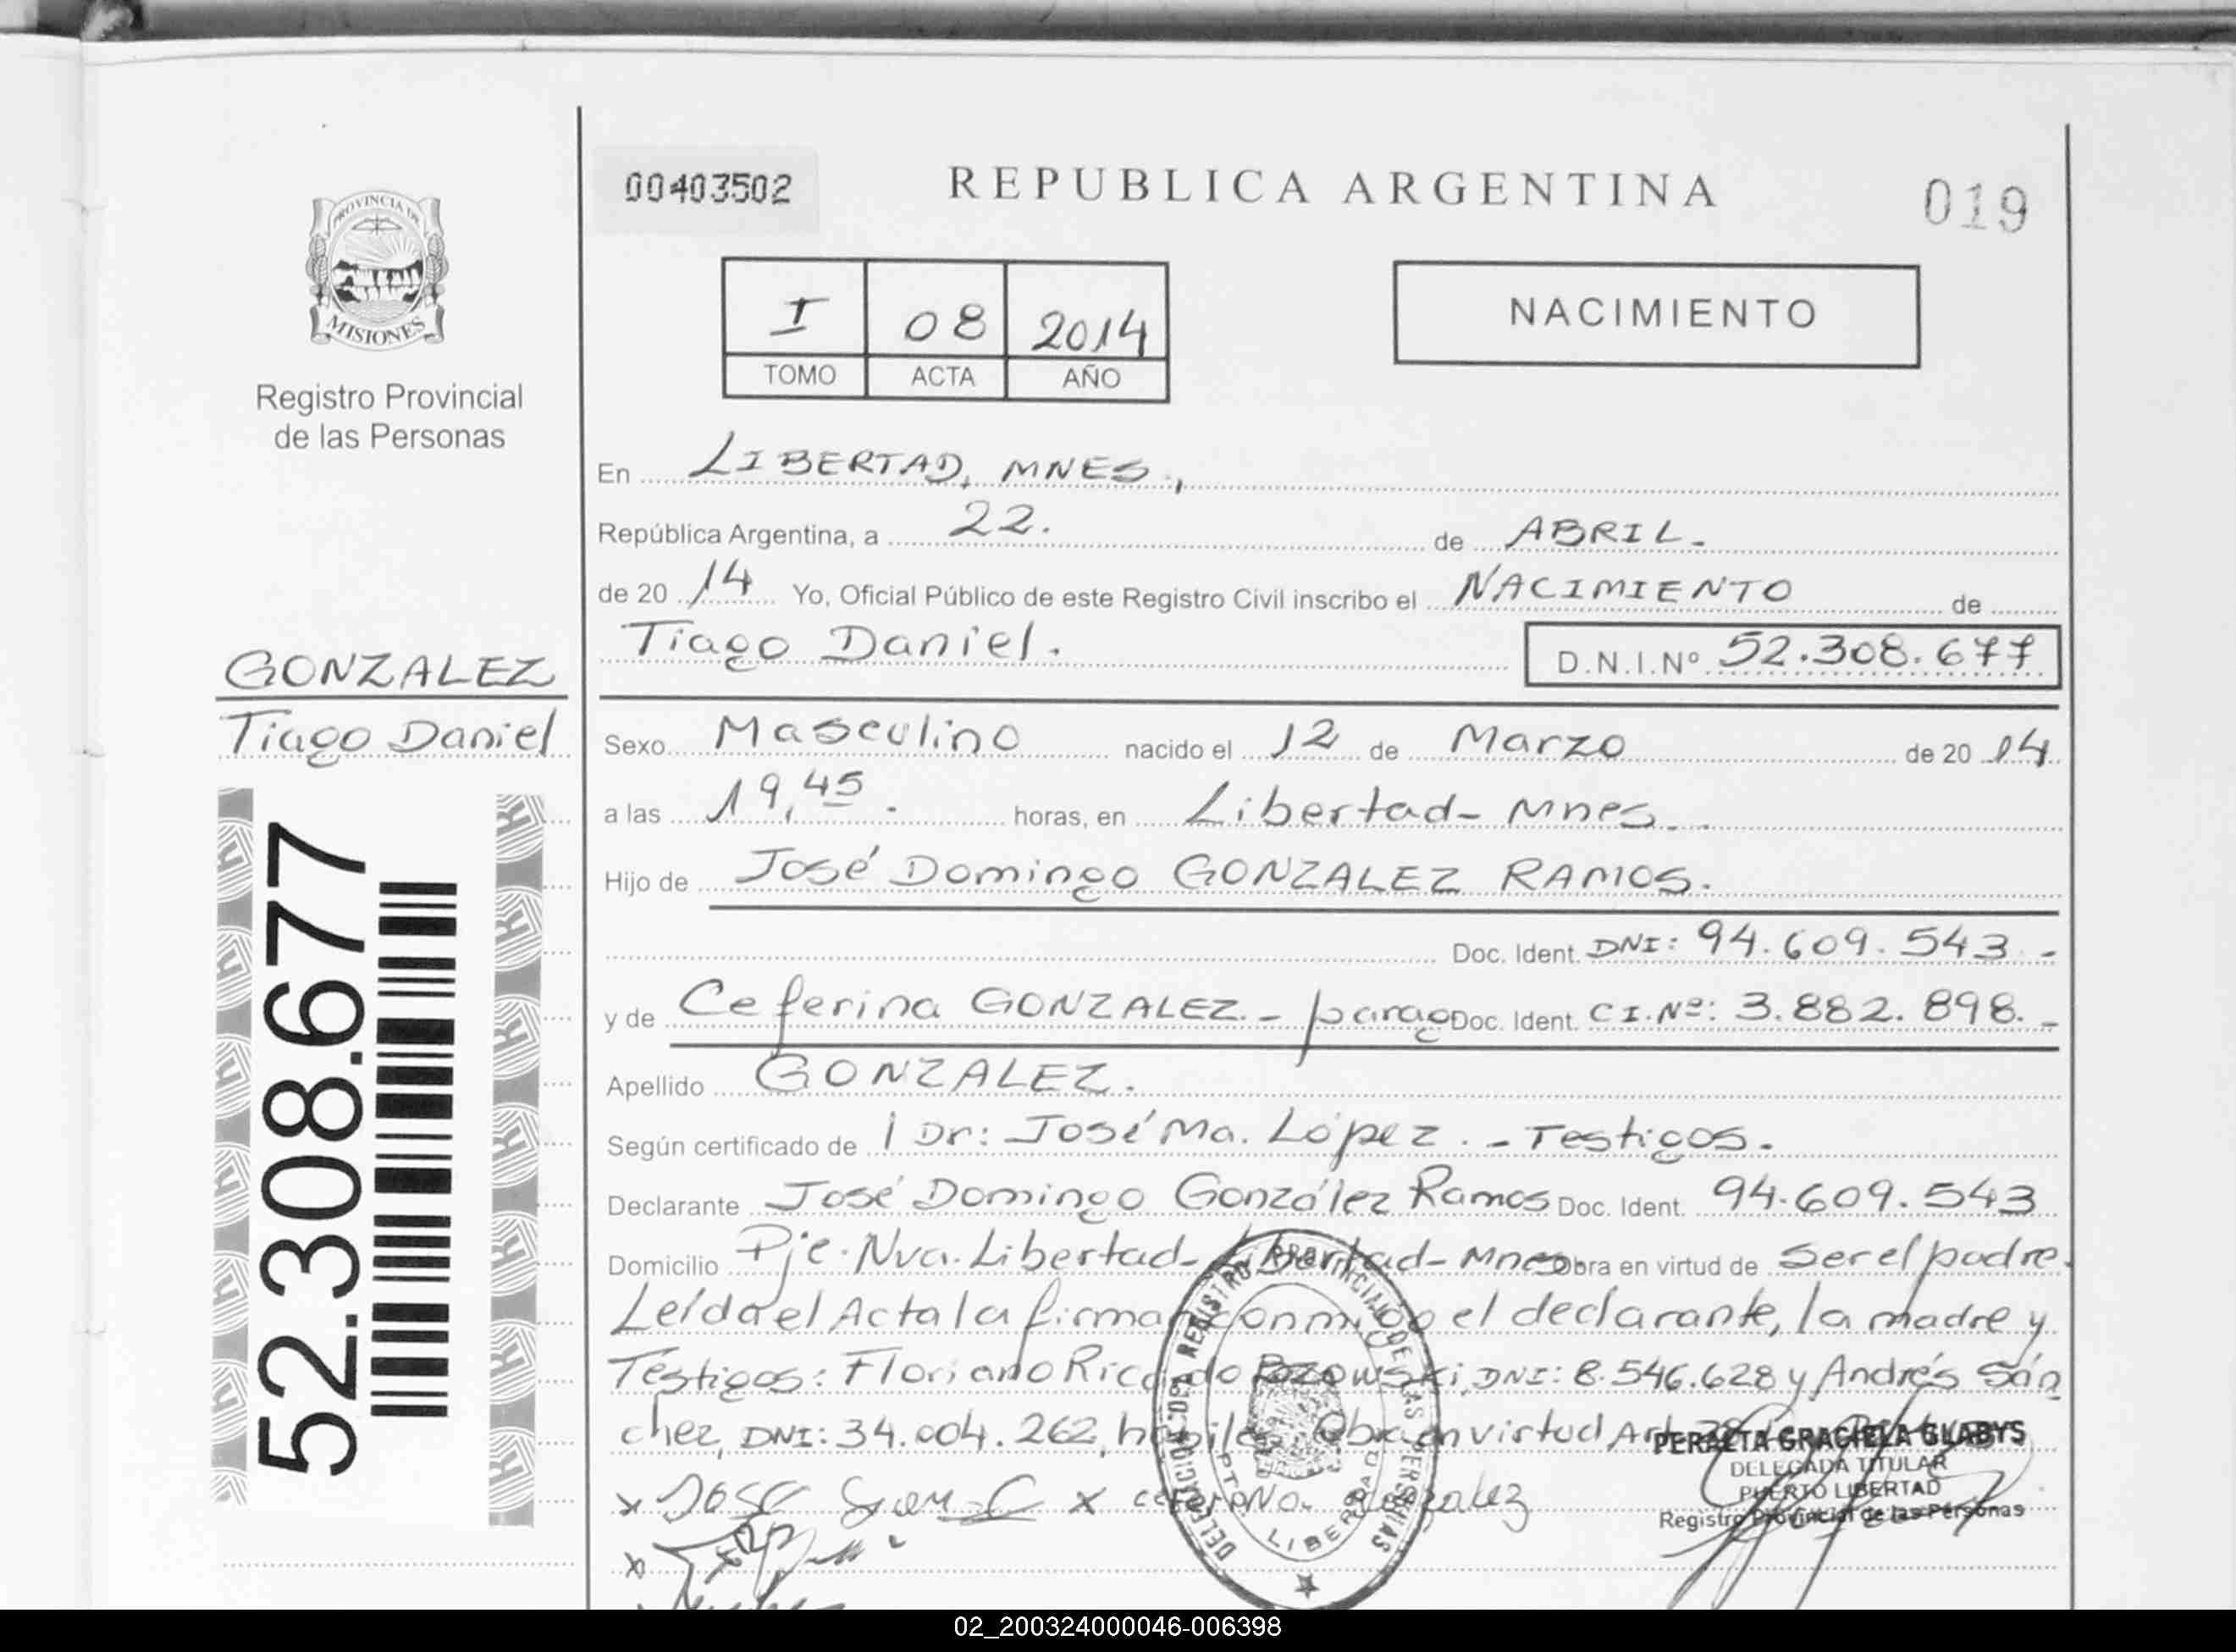 00403502
REPUBLICA ARGENTINA
019
PROVINCIA DE
MISIONES
Registro Provincial
de las Personas
I 08 2014
TOMO ACTA AÑO
NACIMIENTO
En LIBERTAD, MNES.,
República Argentina, a 22. de ABRIL.
de 20 14 Yo, Oficial Público de este Registro Civil inscribo el NACIMIENTO de
Tiago Daniel. D.N.I.Nº 52.308.677
GONZALEZ
Tiago Daniel
52.308.677
Sexo Masculino nacido el 12 de Marzo de 20 14
a las 19,45. horas, en Libertad- Mnes.
Hijo de José Domingo GONZALEZ RAMOS.
Doc. Ident. DNI: 94.609.543.-
y de Ceferina GONZALEZ.- parag Doc. Ident. C.I.Nº: 3.882.898.-
Apellido GONZALEZ.
Según certificado de Dr: José Ma. López.- Testigos.
Declarante José Domingo González Ramos Doc. Ident. 94.609.543
Domicilio Pje. Nva. Libertad- Libertad- Mnes Obra en virtud de Ser el padre.
Leída el Acta la firman conmigo el declarante, la madre y
Testigos: Floriano Ricardo DNI: 8.546.628 y Andrés Sán
chez, DNI: 34.004.262, hábiles. Obra en virtud Art.
PERALTA GRACIELA GLADYS
DELEGADA TITULAR
PUERTO LIBERTAD
Registro Provincial de las Personas
x José x González
x
DELEGACION DEL REGISTRO PROVINCIAL DE LAS PERSONAS
PTO. LIBERTAD
LIBERTAD
02_200324000046-006398